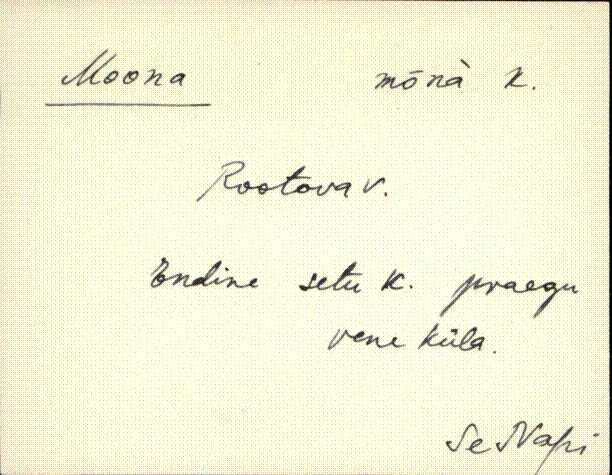 Moona mōnà k.
Rootova v.
Endine setu k. praegu
vene küla.
Se Napi